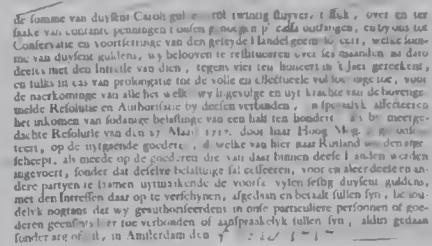 de somme van duysent Carolı gul tot twintig stuyver, t stuk, over en ter
sake van contante penningen t onsen genoegen ontfangen, en by ons tot
Conservatie en voortsettinge van den geleyde Handel geem welcke som-
me van duysent guldens, wy belooven te restitueeren over ses maanden na dato
deeses met den Intresse van dien, tegens vier ten hondert in 't Jaer gereekent,
en sulks in cas van prolongatie tot de volle en effectueele vol toe, voor
de naerkominge van alle het welk wy in gevolge en uyt krachte van de bovenge-
melde Resolutie en Authorisatie by deesen verbinden, specialyk affecteeren
het inkomen van sodanige belastinge van een half ten hondert als by meerge-
dachte Resolutie van den 27 Maart 1717. door haar Hoog Mog.
teert, op de uytgaende goederen, welke van hier naar Rusland werden
scheept, als meede op de goederen die van daar binnen deese Landen werden
aangevoert, sonder dat deselve belastinge sal cesseeren, voor en aleer deese en an-
dere partyen te samen uytmaakende de voorsz vyftien duysent guldens,
met den Intressen daar op te verschynen, afgedaan en betaalt sullen syn,
delyk nogtans dat wy geauthoriseerdens in onse particuliere personen of goe-
deren geensints hier toe verbonden of aanspraakelyk sullen syn, aldus gedaan
sonder arg of list, in Amsterdam den